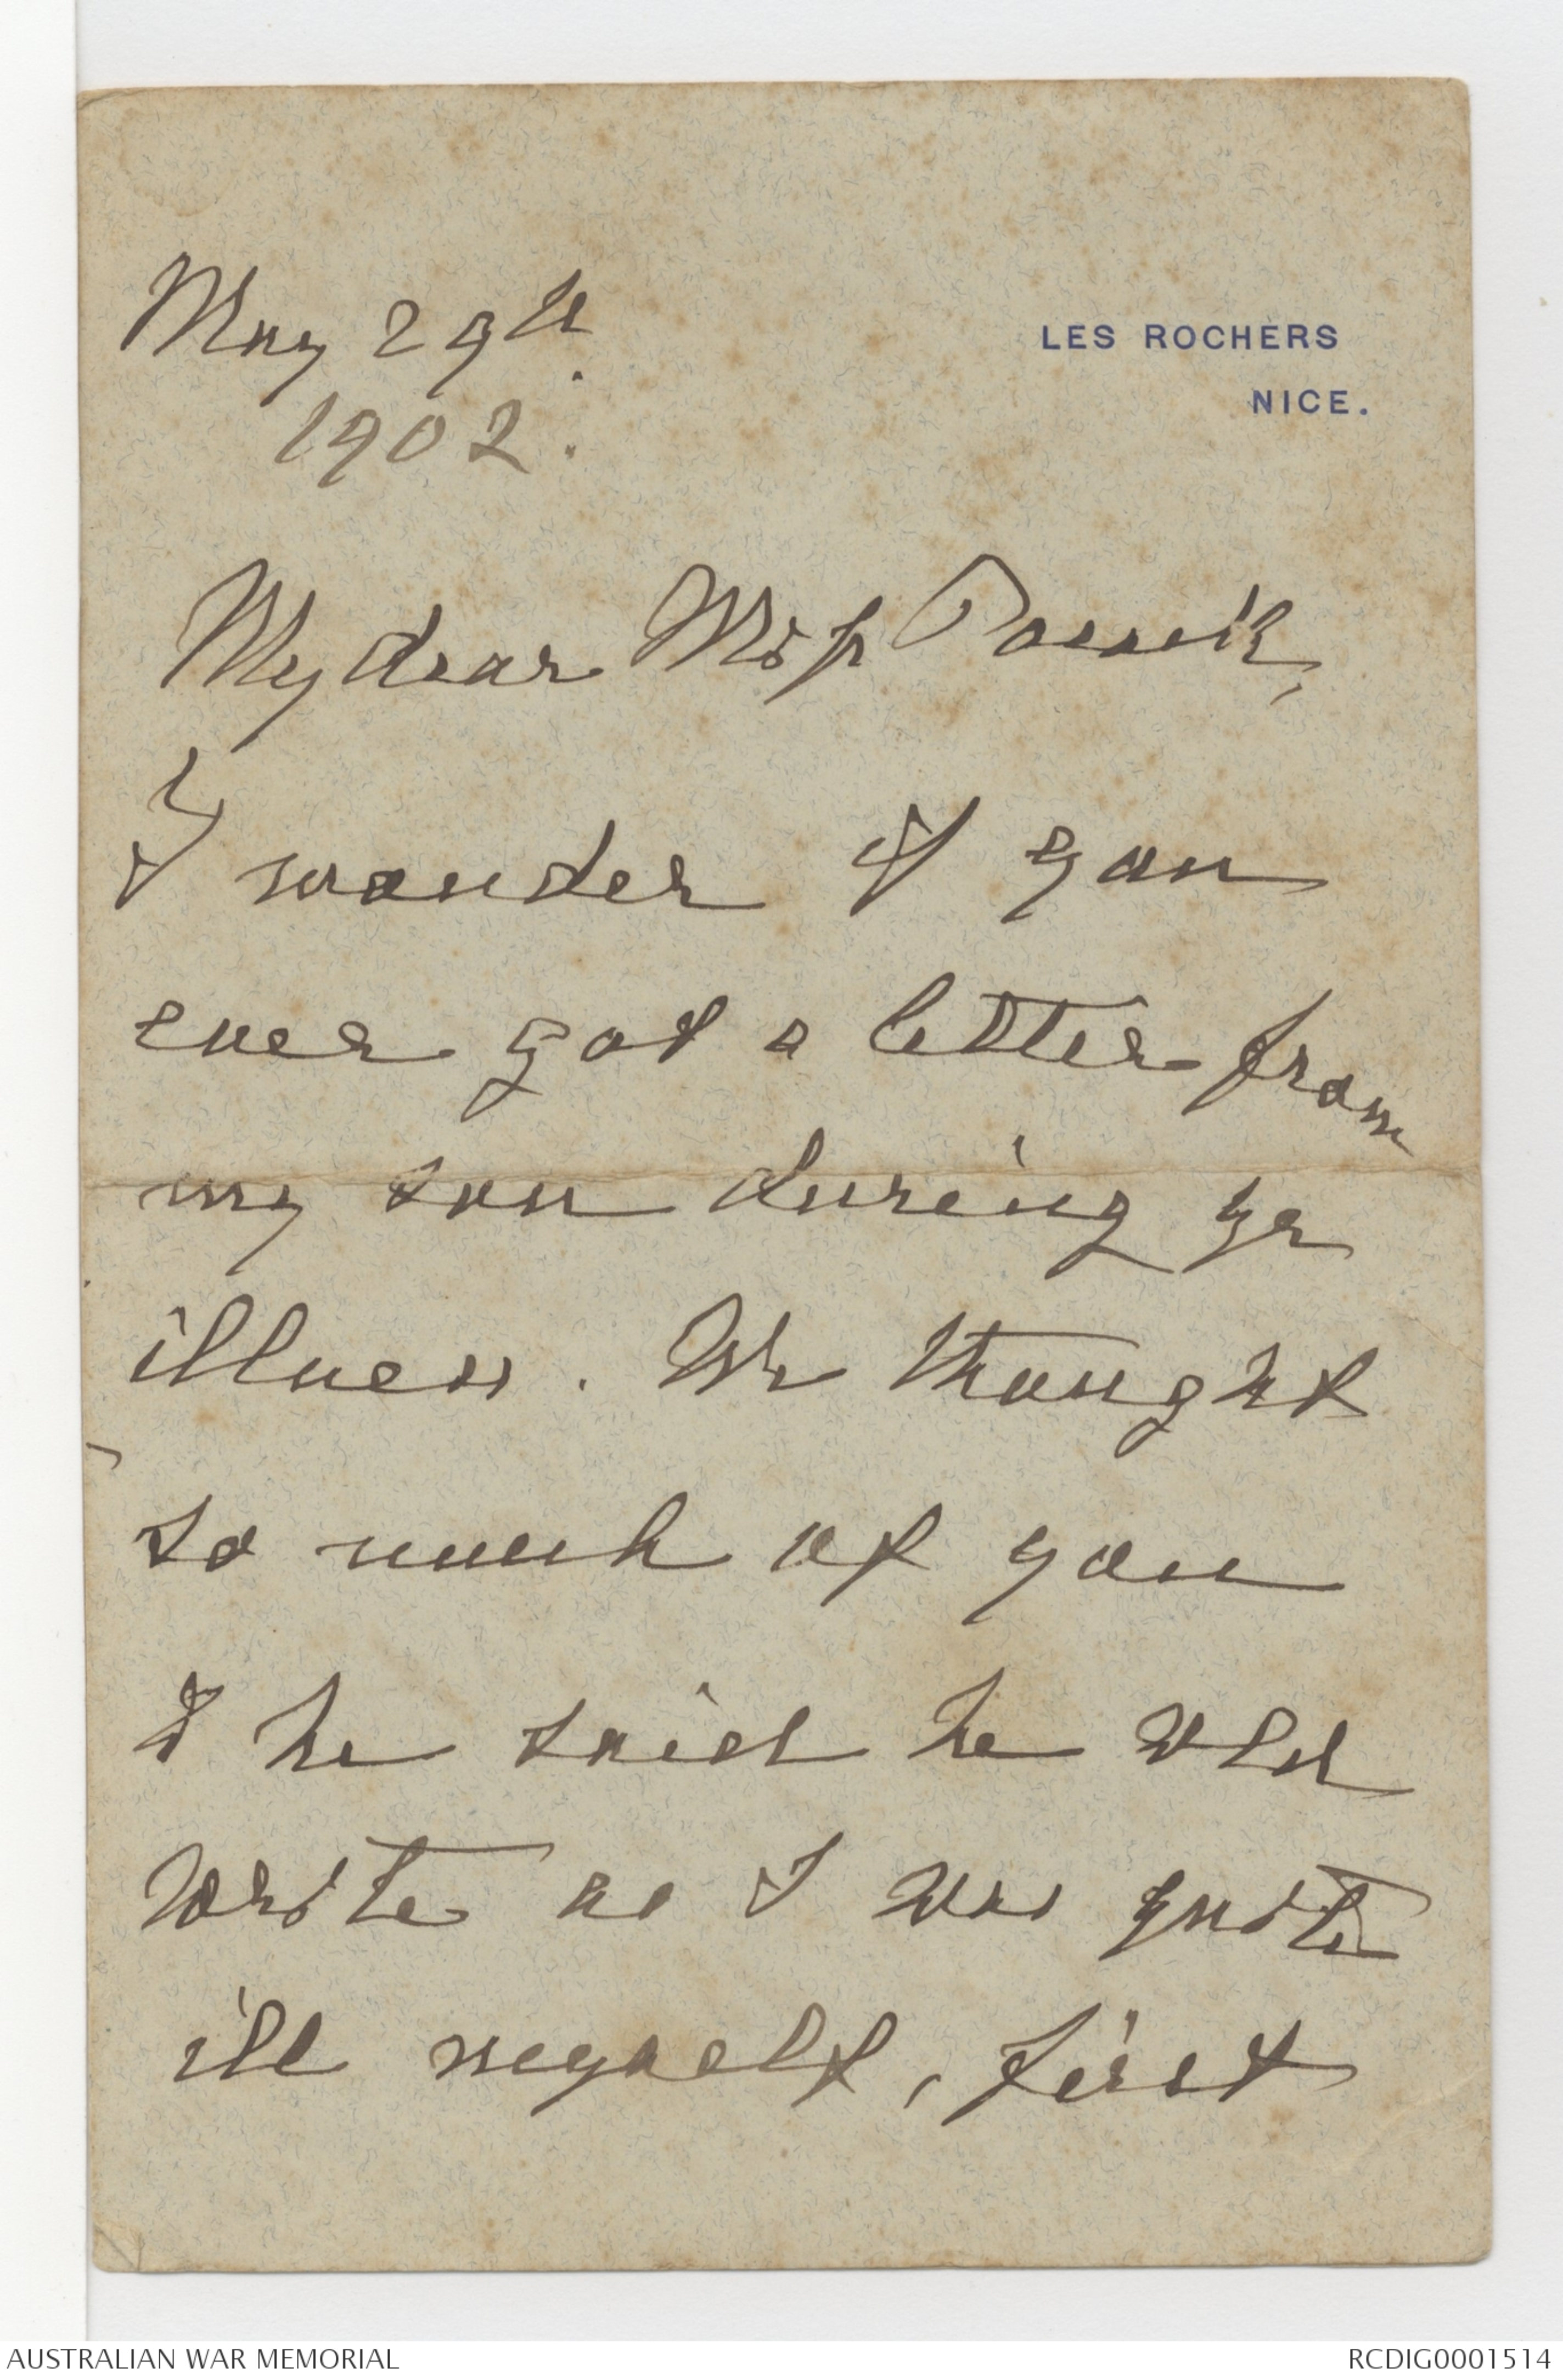 May 29th
1902.
LES ROCHERS
NICE.
My dear Miss Pocock,
I wonder if you
ever got a letter from
my son during yr
illness. We thought
so much of you
& he said he wld
write as I was quite
ill myself, first
AUSTRALIAN WAR MEMORIAL
RCDIG0001514